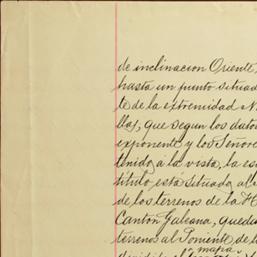 de inclinacion Oriente,
hasta un punto situad
te de la estremidad N
llas, que segun los dato
exponente y los Señore
tenido a la vista, la es
titulo, está situado al
de los terrenos de la H
Canton Galeana, quedan
terrenos al Poniente de la
mapa